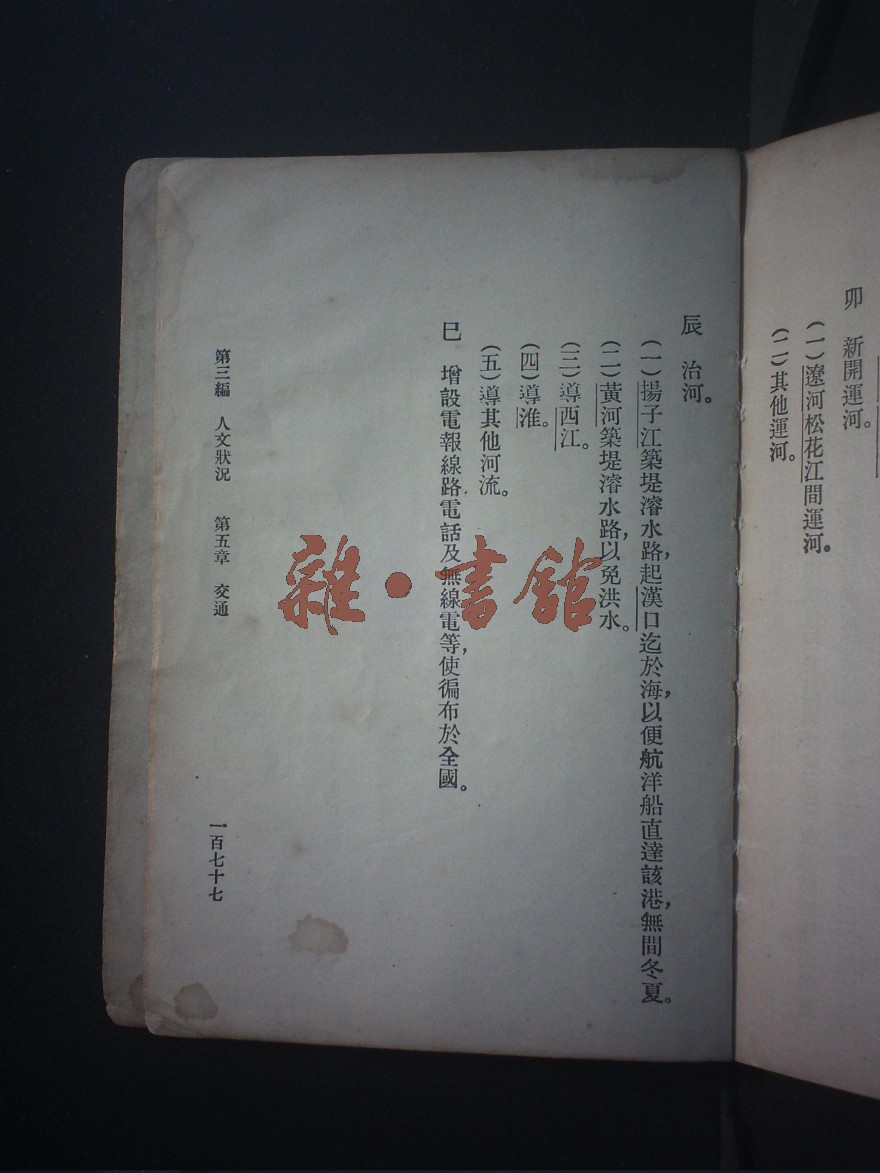 卯　新開運河。
(一)遼河松花江間運河。
(二)其他運河。
辰　治河。
(一)揚子江築堤濬水路,起漢口迄於海,以便航洋船直達該港,無間冬夏。
(二)黃河築堤濬水路,以免洪水。
(三)導西江。
(四)導淮。
(五)導其他河流。
巳　增設電報線路電話及無線電等,使徧布於全國。
第三編　人文狀況　第五章　交通
一百七十七
雜·書館